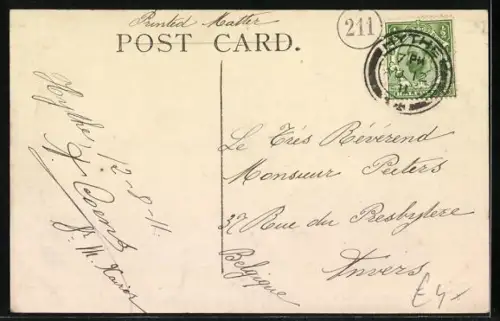 Printed Matter
POST CARD.
211
HYTHE
Hythe, 12-8-11.
Le Trés Révérend
Monsieur Peeters
37 Rue du Presbytere
Anvers
Belgique
£4